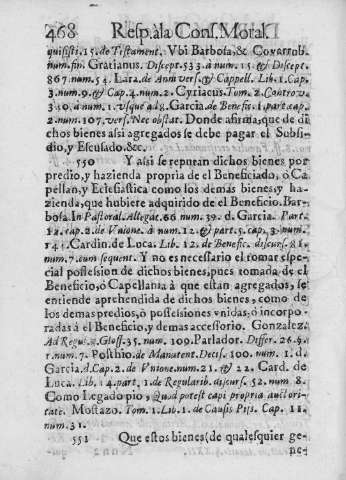 468 Resp. à la Cons. Moral
quisisti. 15. de Testament. Vbi Barbosa, & Covarrob.
num. fin. Gratianus. Discept. 533. à num. 15. & Discept.
867. num. 54. Lara. de Annivers. & Cappell. Lib. 1. Cap.
3. num. 9. & Cap. 4. num. 2. Cyriacus. Tom. 2. Controv.
350. à num. 1. vsque
Garcia. de Benefic. 1. part. cap.
2. num. 107. vers. Nec obstat. Donde afirma, que de di-
chos bienes assi agregados se debe pagar el Subsi-
dio, y Escusado. &c.
550 Y assi se reputan dichos bienes por
predio, y hazienda propria de el Beneficiado, ò Ca-
pellan, y Eclesiastica como los demas bienes, y ha-
zienda, que hubiere adquirido de el Beneficio. Bar-
bosa. In Pastoral. Allegat. 66 num. 39. d. Garcia. Part.
12. cap. 2. de Vnione. à num. 12. & part. 5. cap. 3. num.
141. Cardin. de Luca. Lib. 12. de Benefic. discurs. 81.
num. 7. cum sequent. Y no es necessario el tomar espe-
cial possession de dichos bienes, pues tomada de el
Beneficio, ò Capellania à que estan agregados, se
entiende aprehendida de dichos bienes, como de
los demas predios, ò possessiones vnidas, ò incorpo-
radas à el Beneficio, y demas accessorio. Gonzalez.
Ad Regul. 8. Gloss. 35. num. 109. Parlador. Differ. 26. §.
1. num. 7. Posthio. de Manutent. Decis. 100. num. 1. d.
Garcia. d. Cap. 2. de Vnione. num. 21. & 22. Card. de
Luca. Lib. 14. part. 1. de Regularib. discurs. 52. num. 8.
Como Legado pio, Quod potest capi propria auctori-
tate. Mostazo. Tom. 1. Lib. 1. de Causis Pijs. Cap. 11.
num. 31.
551 Que estos bienes (de qualesquier ge-
ne-